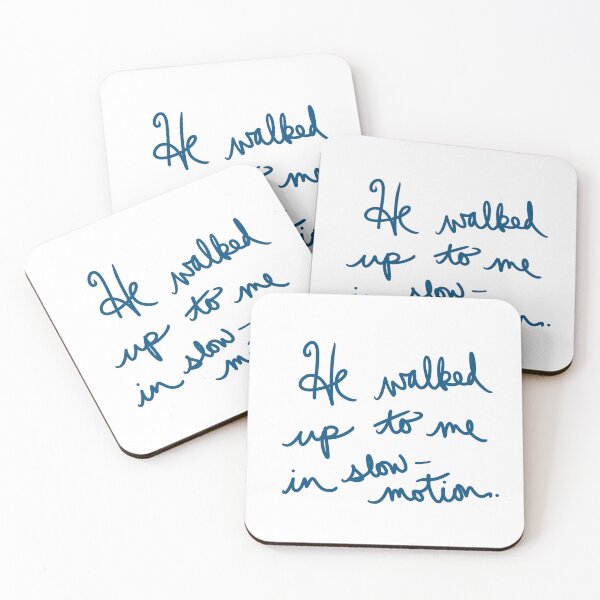 He walked
me
He walked
up to me
in slow-
He walked
up to me
in slow-
He walked
up to me
in slow-
motion.